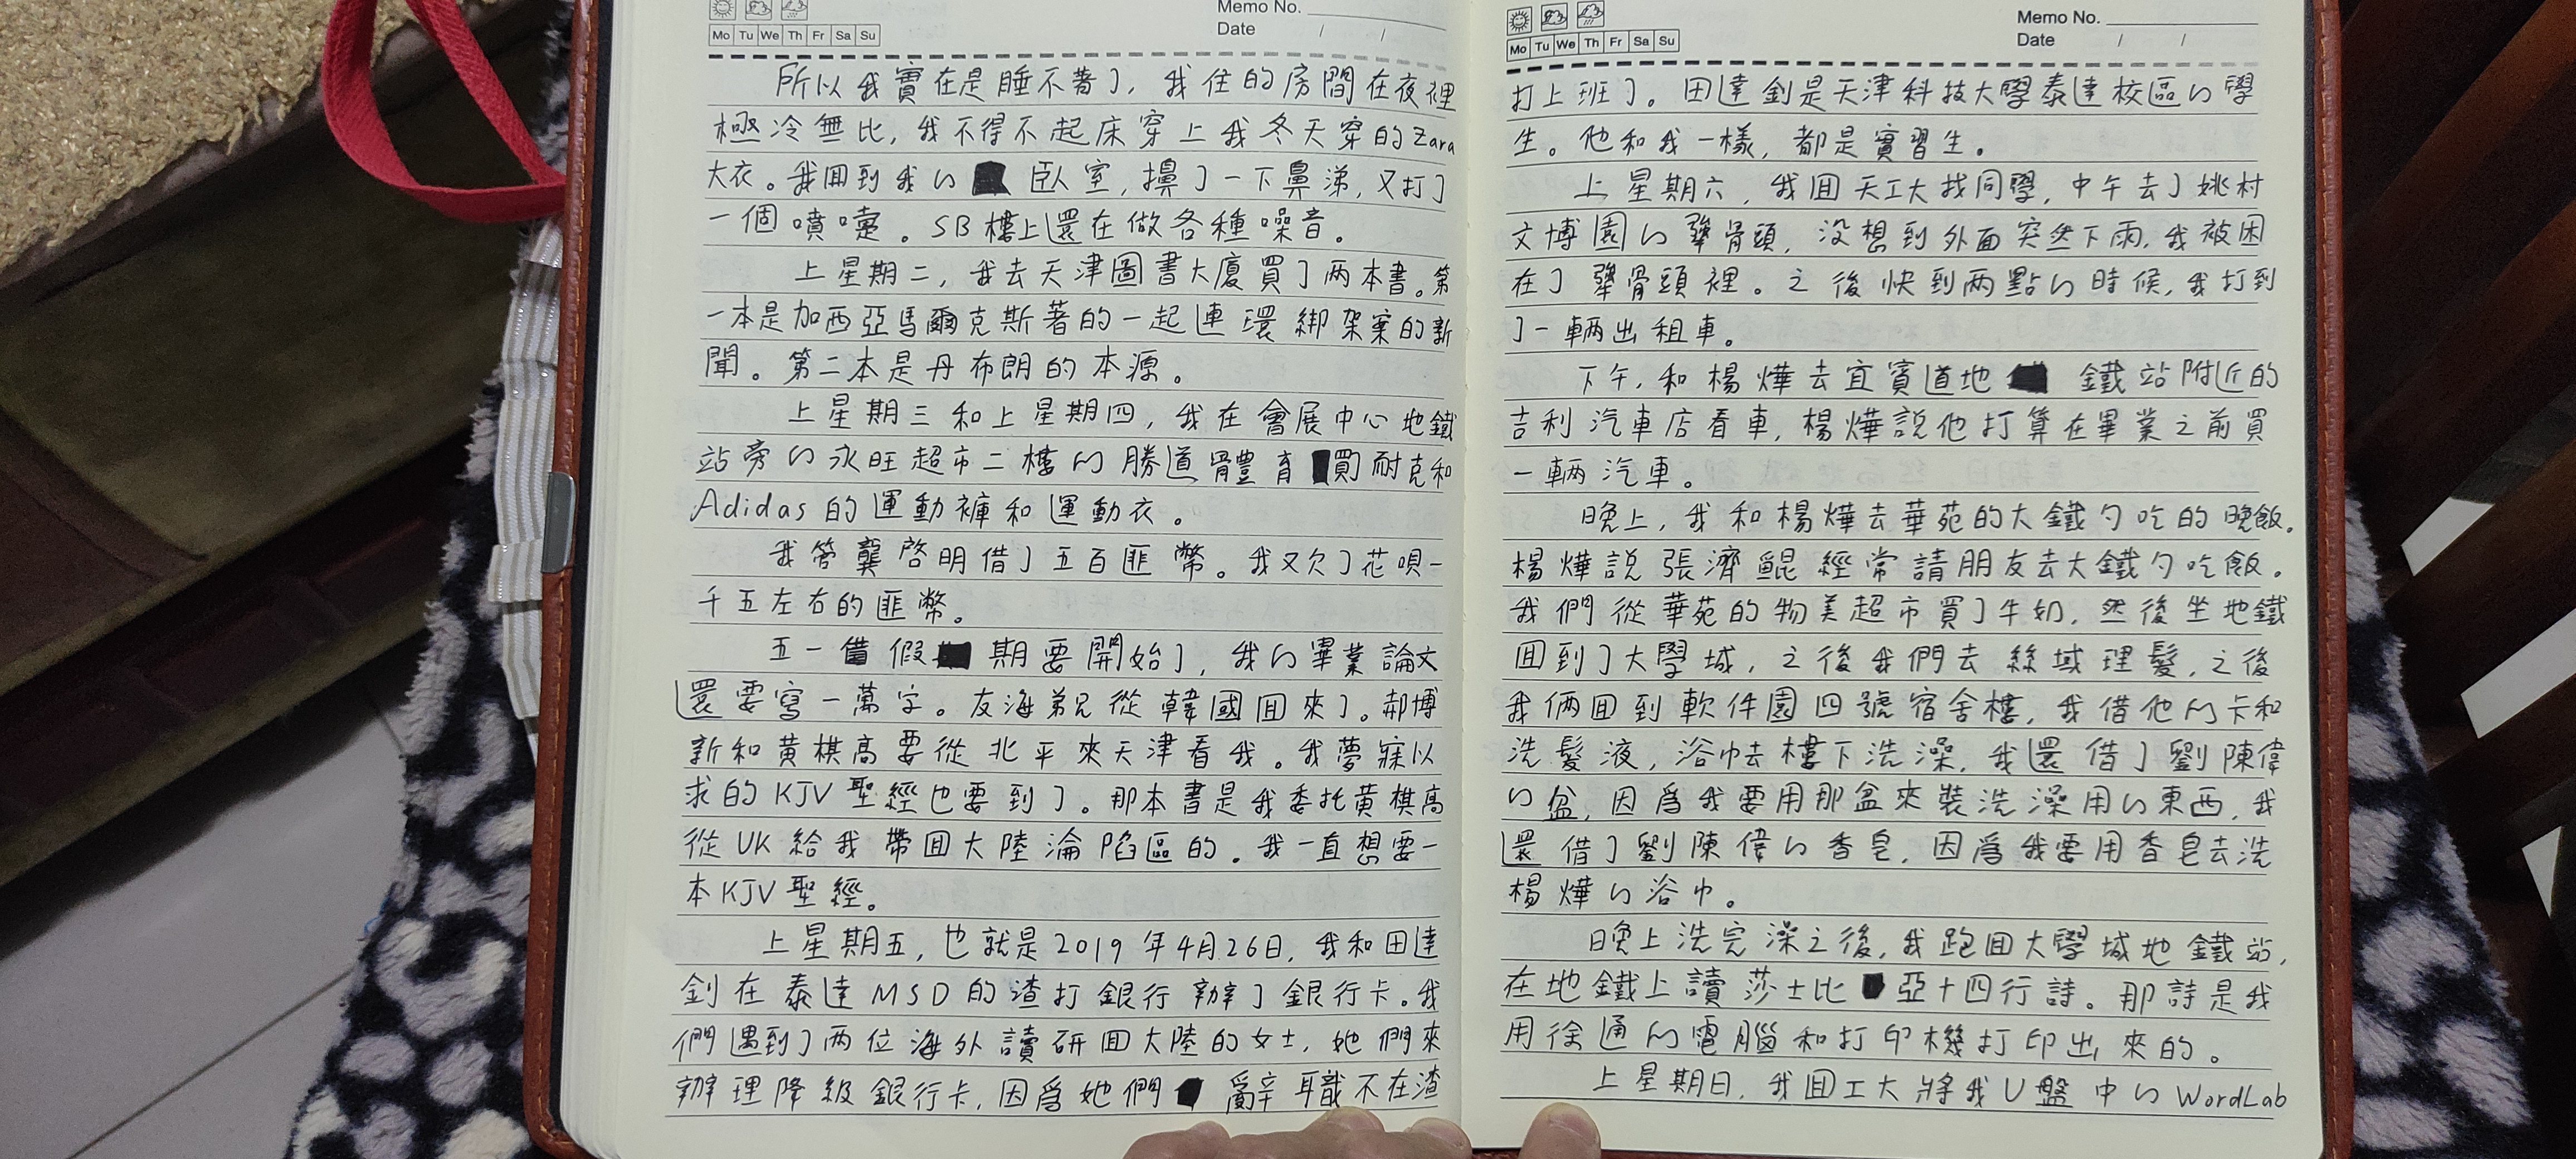 Memo No.
Date / /
Mo Tu We Th Fr Sa Su
所以我實在是睡不著了，我住的房間在夜裡
極冷無比，我不得不起床穿上我冬天穿的Zara
大衣。我回到我的臥室，擤了一下鼻涕，又打了
一個噴嚏。SB樓上還在做各種噪音。
上星期二，我去天津圖書大廈買了两本書。第
一本是加西亞馬爾克斯著的一起連環綁架案的新
聞。第二本是丹布朗的本源。
上星期三和上星期四，我在會展中心地鐵
站旁的永旺超市二樓的勝道體育買耐克和
Adidas的運動褲和運動衣。
我管龔啓明借了五百匪幣。我又欠了花唄一
千五左右的匪幣。
五一假期要開始了，我的畢業論文
還要寫一萬字。友海弟兄從韓國回來了。郝博
新和黃棋高要從北平來天津看我。我夢寐以
求的KJV聖經也要到了。那本書是我委托黃棋高
從UK給我帶回大陸淪陷區的。我一直想要一
本KJV聖經。
上星期五，也就是2019年4月26日，我和田達
釗在泰達MSD的渣打銀行辦了銀行卡。我
們遇到了两位海外讀研回大陸的女士，她們來
辦理降級銀行卡，因爲她們辭職不在渣
Memo No.
Date / /
Mo Tu We Th Fr Sa Su
打上班了。田達釗是天津科技大學泰達校區的學
生。他和我一樣，都是實習生。
上星期六，我回天工大找同學，中午去了姚村
文博園的犟骨頭，没想到外面突然下雨，我被困
在了犟骨頭裡。之後快到两點的時候，我打到
了一輛出租車。
下午，和楊燁去宜賓道地鐵站附近的
吉利汽車店看車，楊燁說他打算在畢業之前買
一輛汽車。
晚上，我和楊燁去華苑的大鐵勺吃的晚飯。
楊燁說張濟鯤經常請朋友去大鐵勺吃飯。
我們從華苑的物美超市買了牛奶，然後坐地鐵
回到了大學城，之後我們去絲域理髮，之後
我倆回到軟件園四號宿舍樓，我借他的卡和
洗髮液，浴巾去樓下洗澡，我還借了劉陳偉
的盆，因爲我要用那盆來裝洗澡用的東西，我
還借了劉陳偉的香皂，因爲我要用香皂去洗
楊燁的浴巾。
晚上洗完澡之後，我跑回大學城地鐵站，
在地鐵上讀莎士比亞十四行詩。那詩是我
用徐通的電腦和打印機打印出來的。
上星期日，我回工大將我U盤中的WordLab